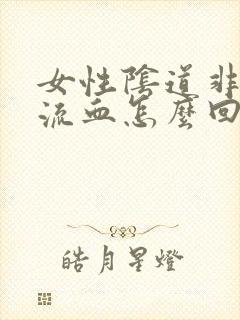 女性陰道非
流血怎麼回
皓月星燈